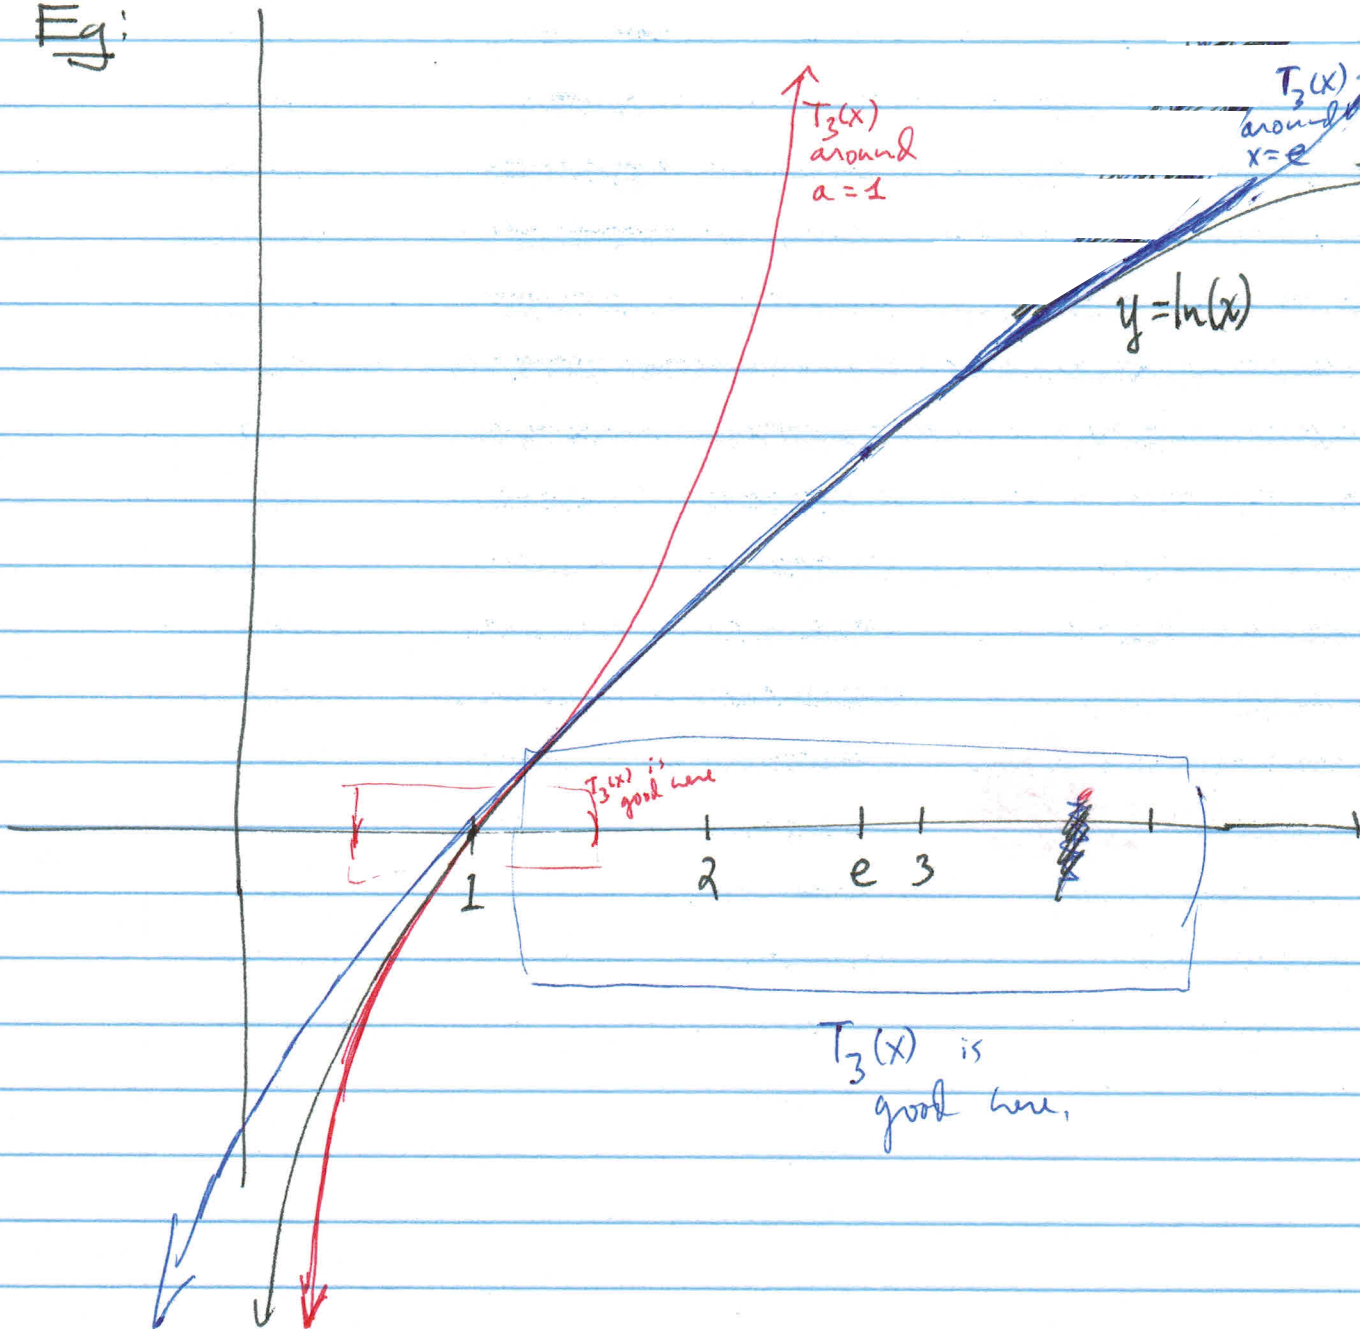 Eg:
T₃(x)
around
a=1
T₃(x)
around
x=e
y=ln(x)
T₃(x) is
good here
1
2
e
3
T₃(x) is
good here.